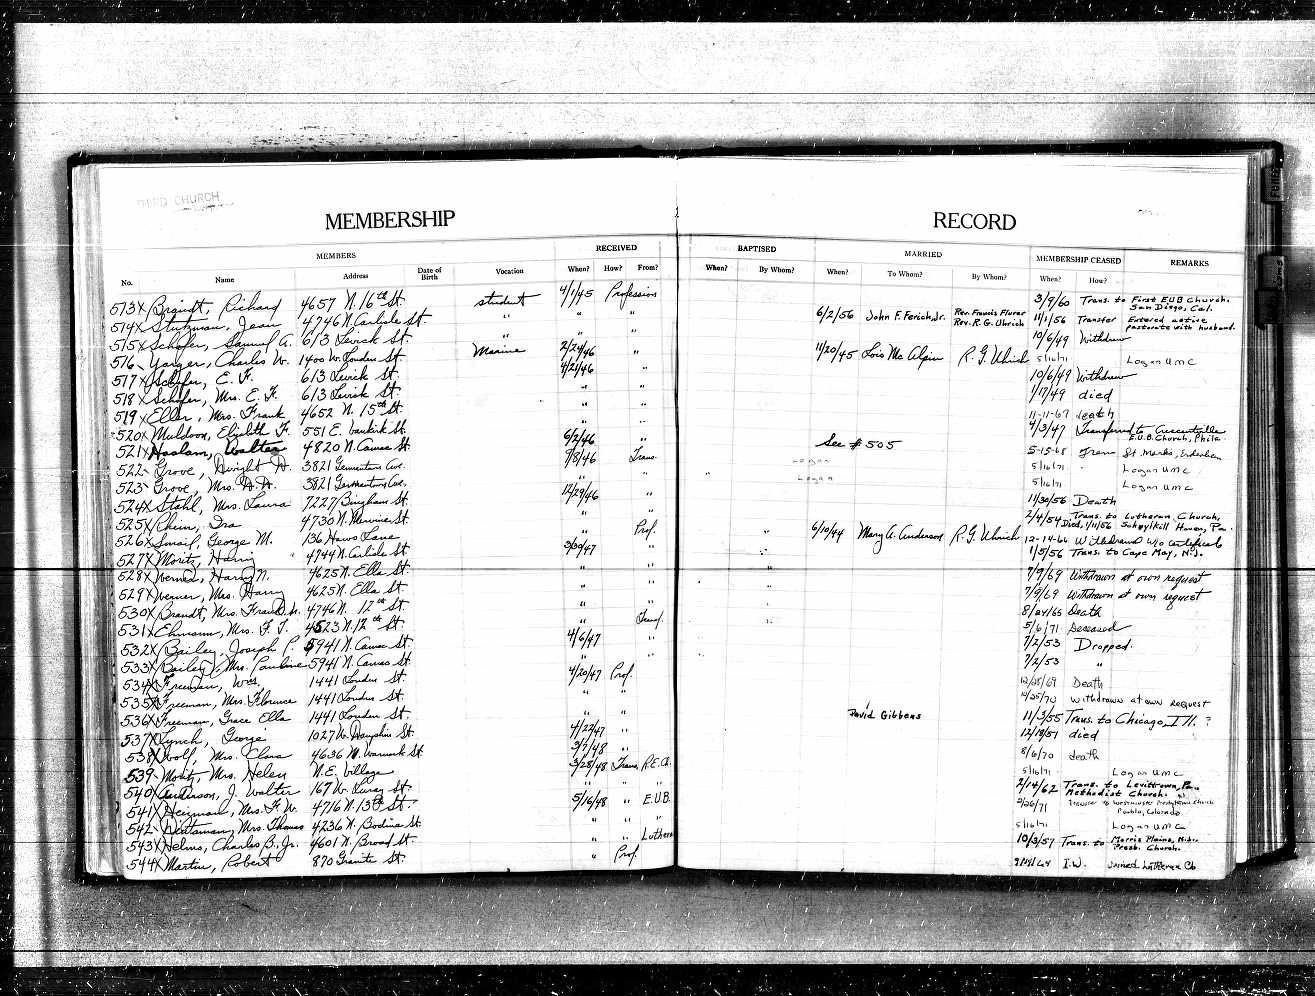 THIRD CHURCH
MEMBERSHIP RECORD
MEMBERS RECEIVED BAPTISED MARRIED MEMBERSHIP CEASED REMARKS
No. Name Address Date of Birth Vocation When? How? From? When? By Whom? When? To Whom? By Whom? When? How?
513X Brandt, Richard 4657 N. 16th St. student 4/1/45 Profession 3/9/60 Trans. to First E.U.B. Church. San Diego, Cal.
514X Stutzman, Jean 4746 N. Carlisle St. " " " 6/2/56 John F. Ferich, Jr. Rev. Francis Rev. R. G. Uhrich 11/1/56 Transfer Entered active pastorate with husband.
515X Schofer, Samuel A. 613 Levick St. " " " 10/6/49 Withdrew
516 Yarger, Charles W. 1400 W. Louden St. Marine 2/24/46 " 11/20/45 Lois Mc Alpin R. G. Uhrich 5/16/71 Logan UMC
517X Schofer, E. F. 613 Levick St. 4/21/46 " 10/6/49 Withdrew
518X Schofer, Mrs. E. F. 613 Levick St. " " 1/17/49 died
519X Eller, Mrs. Frank 4652 N. 15th St. " " 11-11-67 death
520X Muldoon, Elizabeth F. 551 E. St. " " 4/3/47 Transferred to E.U.B. Church, Phila.
521X Haslam, Walter 4820 N. Camac St. 6/2/46 " See # 505 5-15-68 Trans St. Marks,
522 Grove, Dwight H. 3821 Germantown Ave. 7/8/46 Trans. Logan 5/16/71 " Logan UMC
523 Grove, Mrs. D. H. 3821 Germantown Ave. " " " Logan 5/16/71 Logan UMC
524X Stahl, Mrs. Laura 7227 Bingham St. 12/29/46 " 11/30/56 Death
525X Ira 4730 N. Mervine St. " " 2/4/54 Trans. to Lutheran Church, Died, 1/11/56 Schuylkill Haven, Pa.
526X Smail, George M. 136 Haws Lane " Prof. " 6/10/44 Mary A. Anderson R. G. Uhrich 12-14-66 Withdrawal w/o certificate
527X Moritz, Harry 4744 N. Carlisle St. 3/30/47 " " 1/5/56 Trans. to Cape May, N.J.
528X Werner, Harry N. 4625 N. Ella St. " " " 7/9/69 Withdrawn at own request
529X Werner, Mrs. Harry 4625 N. Ella St. " " " 7/9/69 Withdrawn at own request
530X Brandt, Mrs. 4746 N. 12th St. " " 8/24/65 Death
531X Ehmann, Mrs. F. J. 4523 N. 12th St. " Transf. " 5/6/71 Deceased
532X Bailey, Joseph P. 5941 N. Camac St. 4/6/47 " 7/2/53 Dropped.
533X Bailey, Mrs. Pauline 5941 N. Camac St. " " 7/2/53 "
534X Freeman, Wm. 1441 Louden St. 4/20/47 Prof. 12/25/69 Death
535X Freeman, Mrs. Florence 1441 Louden St. " " 4/25/70 withdrawn at own request
536X Freeman, Grace Ella 1441 Louden St. " " David Gibbens 11/3/55 Trans. to Chicago, Ill. ?
537X Lynch, George 1027 W. Dauphin St. 4/27/47 " 12/19/51 died
538X Wolf, Mrs. Clara 4636 N. Warnock St. 3/7/48 " 8/6/70 death
539 Moritz, Mrs. Helen N.E. Village 3/28/48 Trans. 5/16/71 Logan UMC
540X Anderson, J. Walter 167 W. Luray St. " " " 2/14/62 Trans. to Levittown, Pa. Methodist Church.
541X Heizman, Mrs. F. W. 4716 N. 13th St. 5/16/48 " E.U.B. 2/26/71 Transfer to Westminster Presbyterian Church Pueblo, Colorado
542 Mrs. Thomas 4236 N. Bodine St. " " " 5/16/71 Logan UMC
543X Helms, Charles B. Jr. 4601 N. Broad St. " " Lutheran 10/3/57 Trans. to Morris Plains, N.J., Presb. Church.
544X Martin, Robert 870 Granite St. " Prof. I.W. Joined Lutheran Ch